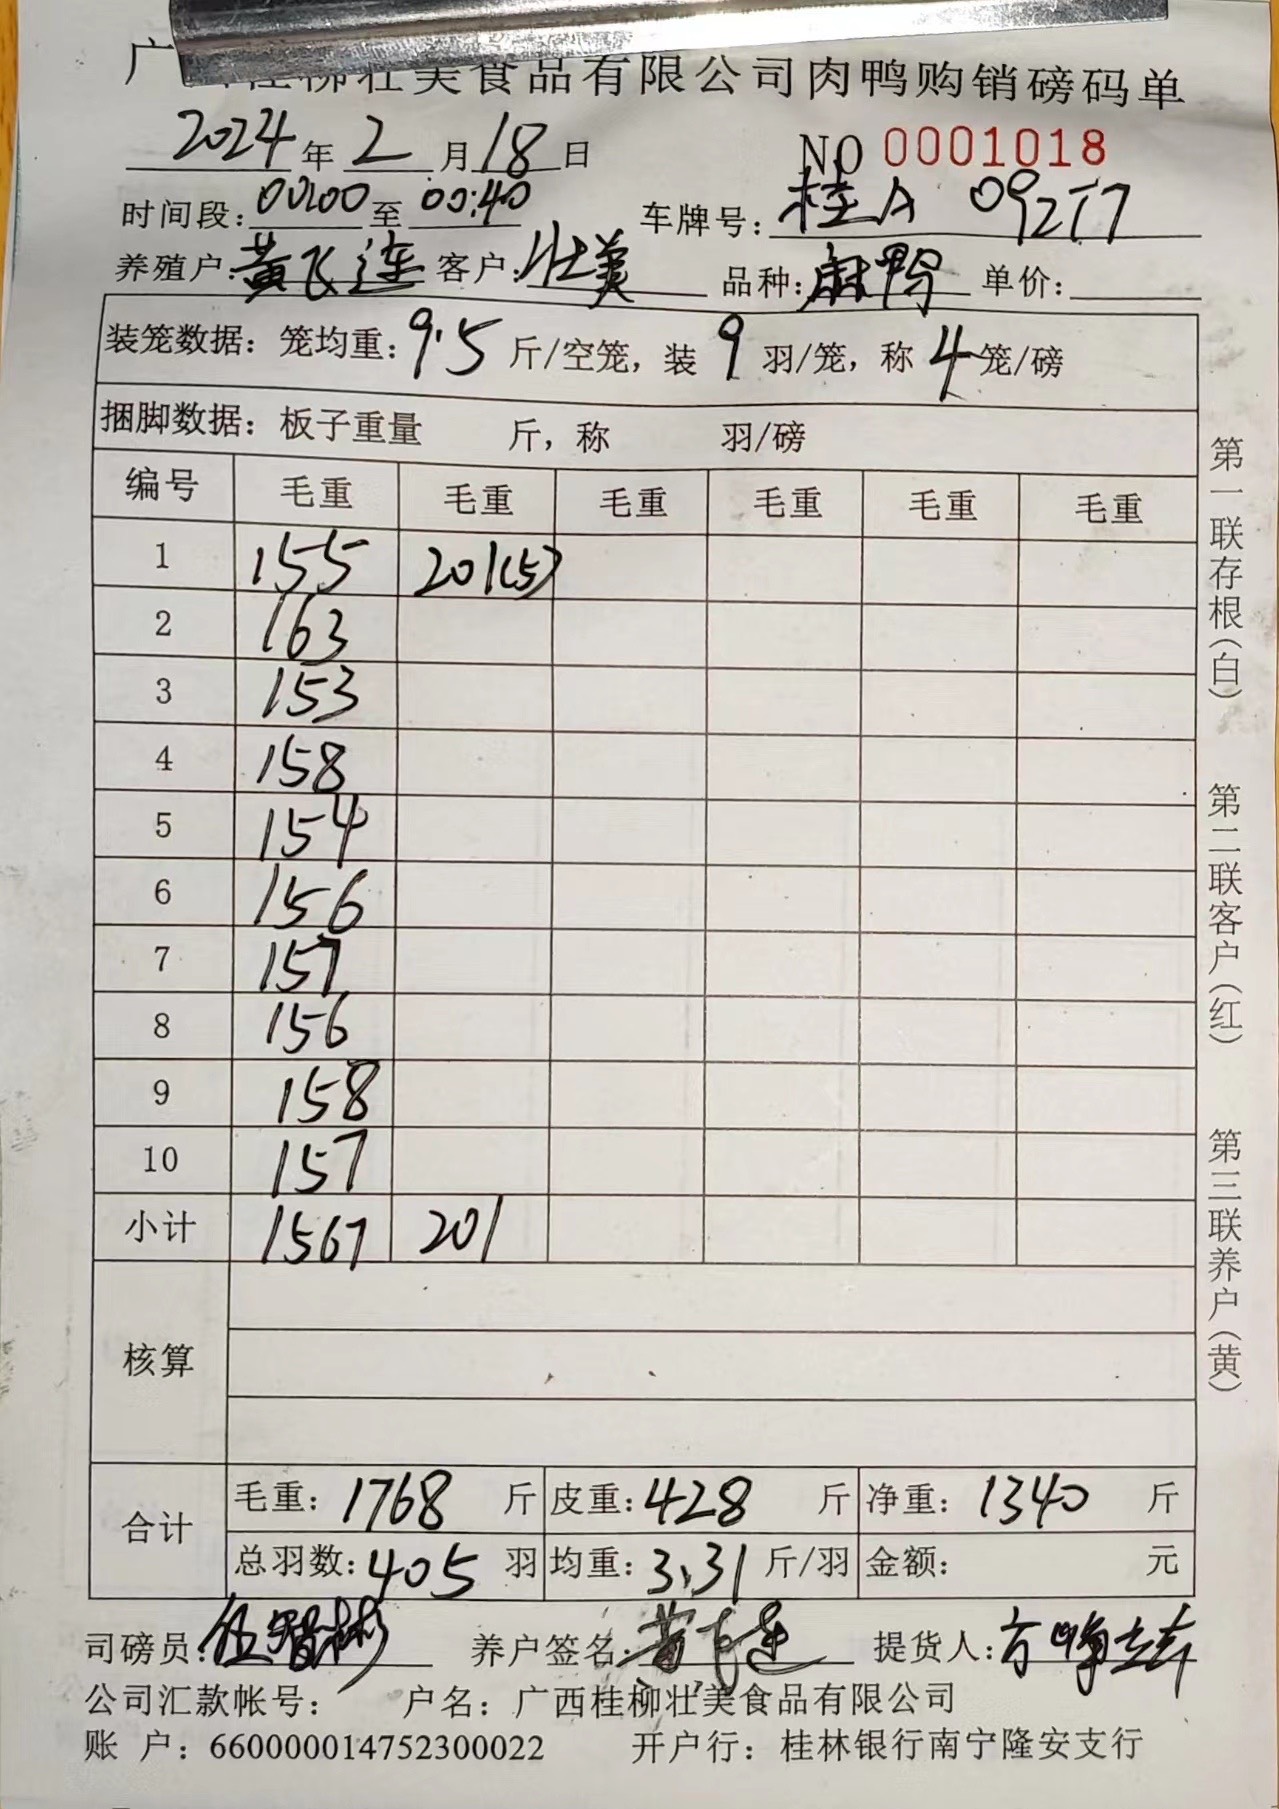 广 桂柳壮美食品有限公司肉鸭购销磅码单
2024年2月18日 NO 0001018
时间段:00:00至00:40 车牌号:桂A 09
养殖户:黄飞连 客户:壮美 品种:麻鸭 单价:
装笼数据:笼均重:9.5斤/空笼,装9羽/笼,称4笼/磅
捆脚数据:板子重量 斤,称 羽/磅
编号 毛重 毛重 毛重 毛重 毛重 毛重
1 155 201(5)
2 163
3 153
4 158
5 154
6 156
7 157
8 156
9 158
10 157
小计 1567 201
核算
合计 毛重:1768斤 皮重:428斤 净重:1340斤
总羽数:405羽 均重:3.31斤/羽 金额: 元
司磅员:伍 彬 养户签名:黄飞连 提货人:方
公司汇款帐号: 户名:广西桂柳壮美食品有限公司
账 户:660000014752300022 开户行:桂林银行南宁隆安支行
第一联存根(白)
第二联客户(红)
第三联养户(黄)